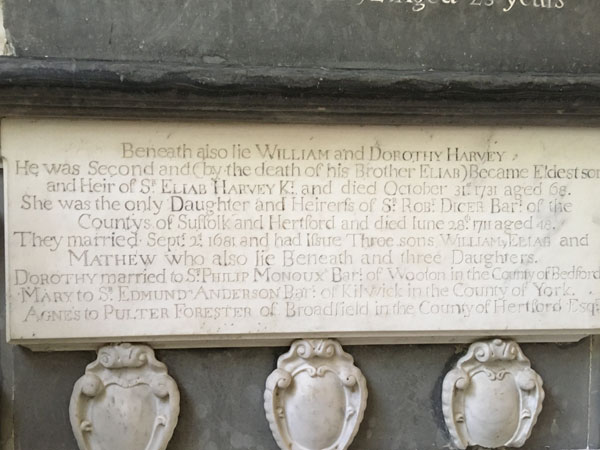 aged 23 years
Beneath also lie WILLIAM and DOROTHY HARVEY
He was Second and (by the death of his Brother ELIAB) Became Eldest son
and Heir of Sr. ELIAB HARVEY Kt. and died October 31st. 1731 aged 68.
She was the only Daughter and Heireſs of Sr. ROBt. DICER Bart. of the
Countys of Suffolk and Hertford and died June 28th. 1711 aged 48.
They married Septr. 2d. 1681 and had iſsue Three sons WILLIAM, ELIAB and
MATHEW who also lie Beneath and three Daughters.
DOROTHY married to Sr. PHILIP MONOUX Bart. of Wooton in the County of Bedford
MARY to Sr. EDMUND ANDERSON Bart. of Kilwick in the County of York.
AGNES to PULTER FORESTER of Broadfield in the County of Hertford Esqr.